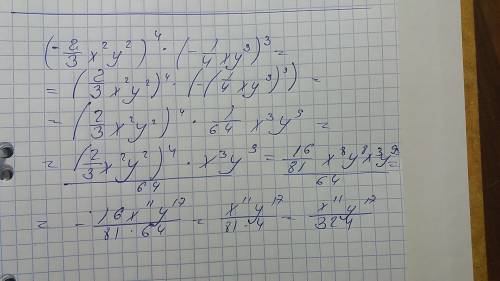 (-2/3 x²y²)⁴ · (-1/4 xy³)³ =
= (2/3 x²y²)⁴ · (-(1/4 xy³)³) =
= (2/3 x²y²)⁴ · 1/64 x³y⁹ =
= (2/3 x²y²)⁴ · x³y⁹ / 64 = 16/81 x⁸y⁸x³y⁹ / 64 =
= - 16x¹¹y¹⁷ / 81·64 = x¹¹y¹⁷ / 81·4 = x¹¹y¹⁷ / 324